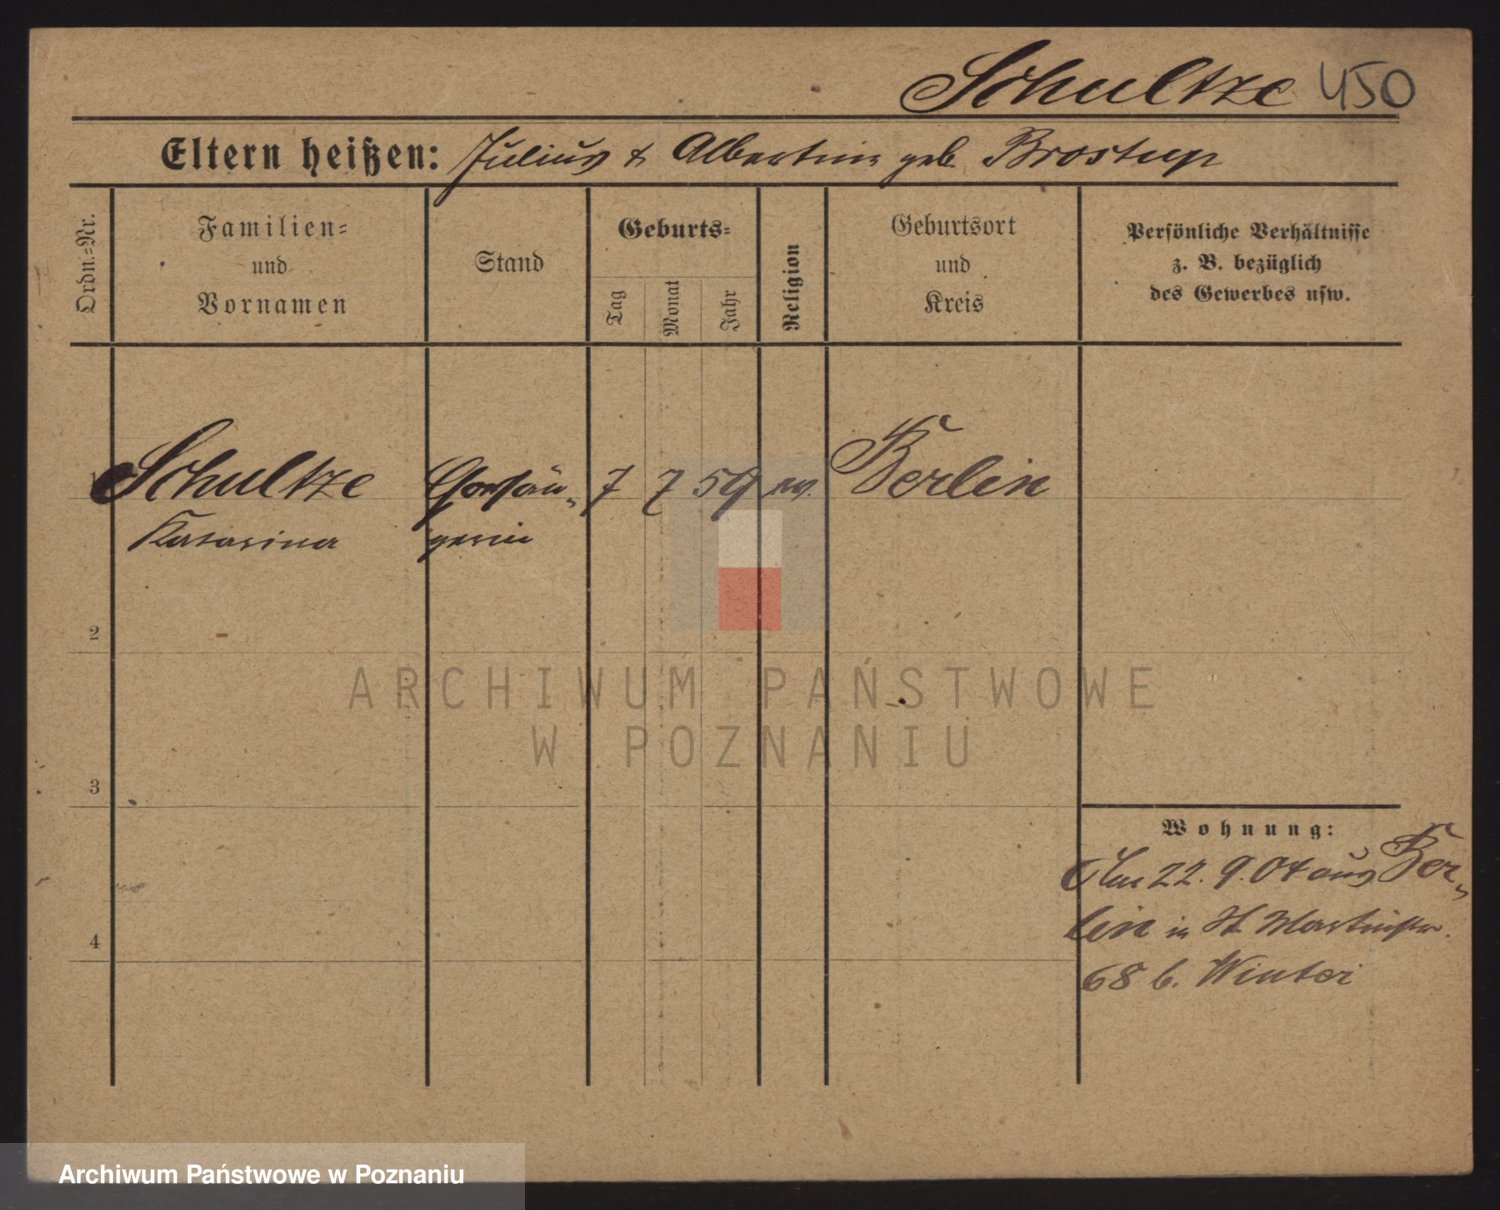 Schultze 450
Eltern heißen: Julius & Albertine geb. Brostup
Ordn.=Nr.
Familien=
und
Vornamen
Stand
Geburts=
Tag
Monat
Jahr
Religion
Geburtsort
und
Kreis
Persönliche Verhältnisse
z. B. bezüglich
des Gewerbes usw.
1 Schultze 7 7 59 ev. Berlin
Katarina gerin
2
3
4
Wohnung:
22. 9. 04 aus Ber-
lin in St Martinstr.
68 b. Winter
ARCHIWUM PAŃSTWOWE
W POZNANIU
Archiwum Państwowe w Poznaniu